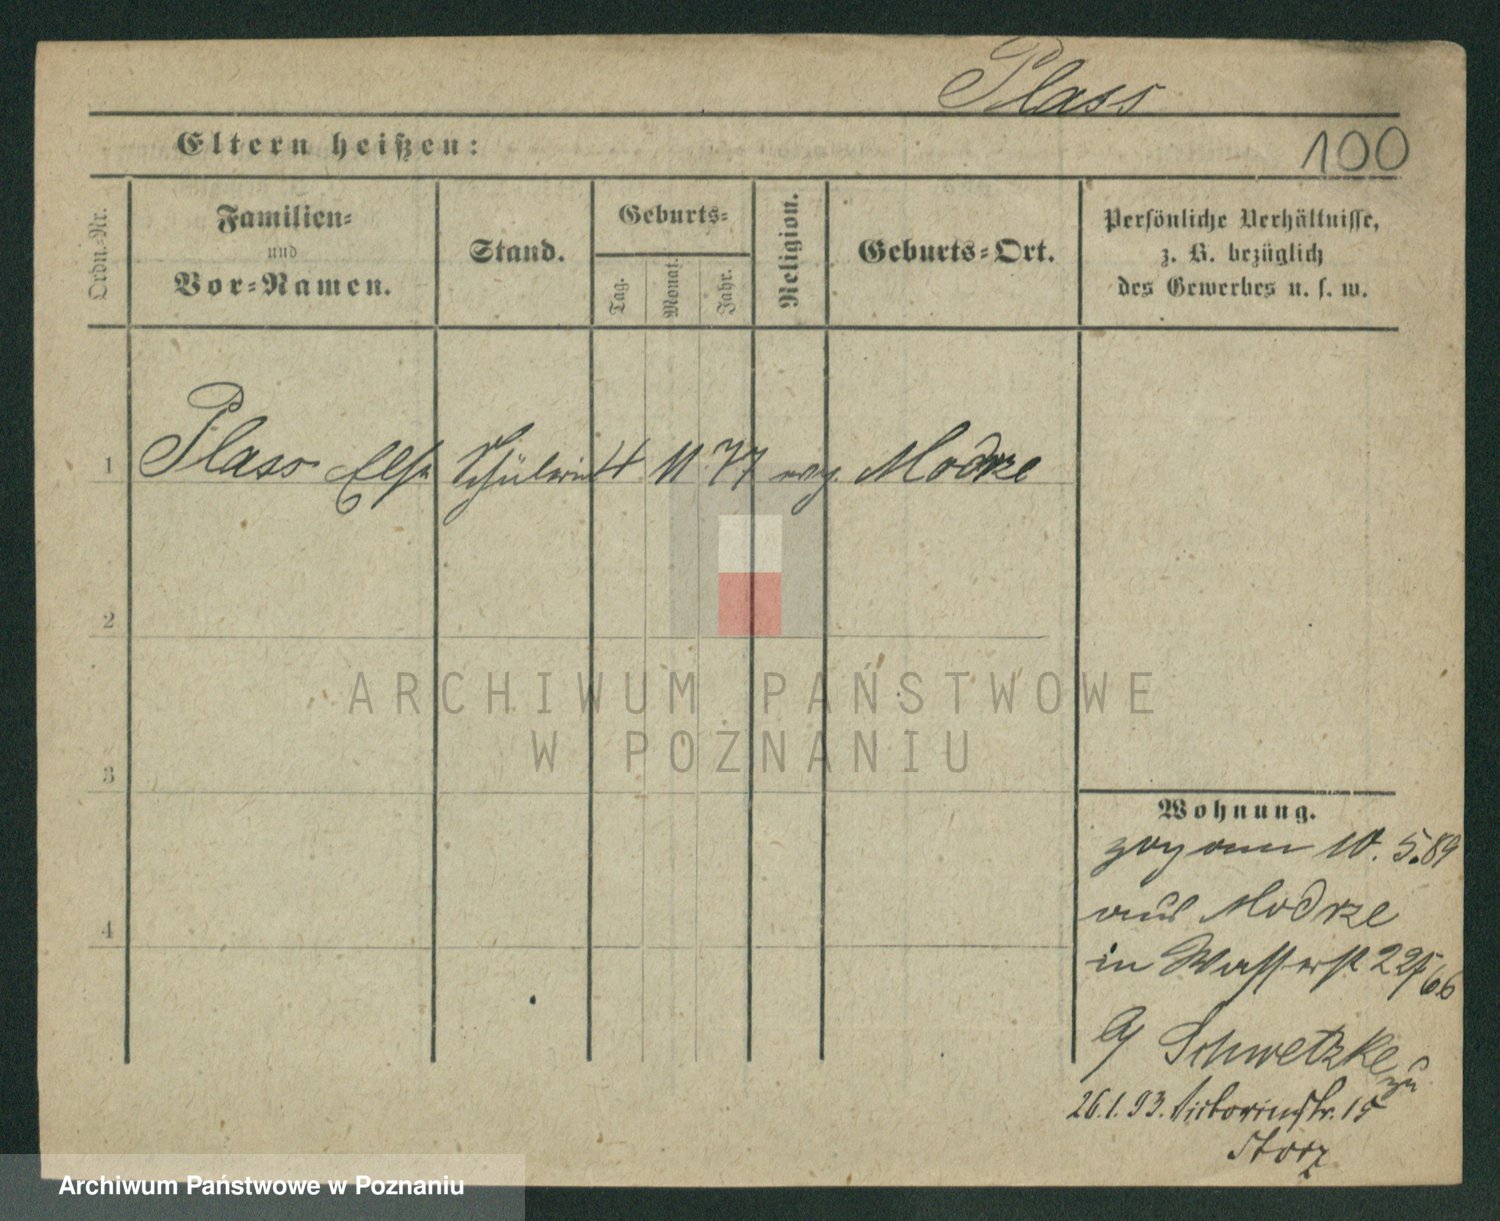 Plass
Eltern heißen:
100
Ordn.-Nr.
Familien-
und
Vor-Namen.
Stand.
Geburts-
Tag.
Monat.
Jahr.
Religion.
Geburts-Ort.
Persönliche Verhältnisse,
z. B. bezüglich
des Gewerbes u. s. w.
1 Plass Else Schülerin 4 11 77 evg. Modrze
2
3
4
ARCHIWUM PAŃSTWOWE
W POZNANIU
Wohnung.
zog am 10. 5. 89
aus Modrze
in Wasserst 22
Schwetzke
zu
26.1.93. Victoriastr. 15
Storz
Archiwum Państwowe w Poznaniu